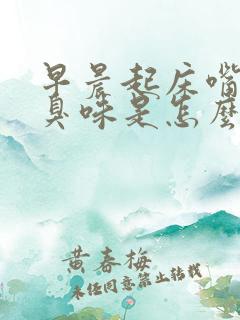 早晨起床嘴
臭味是怎么
黄春梅
未经同意禁止转载